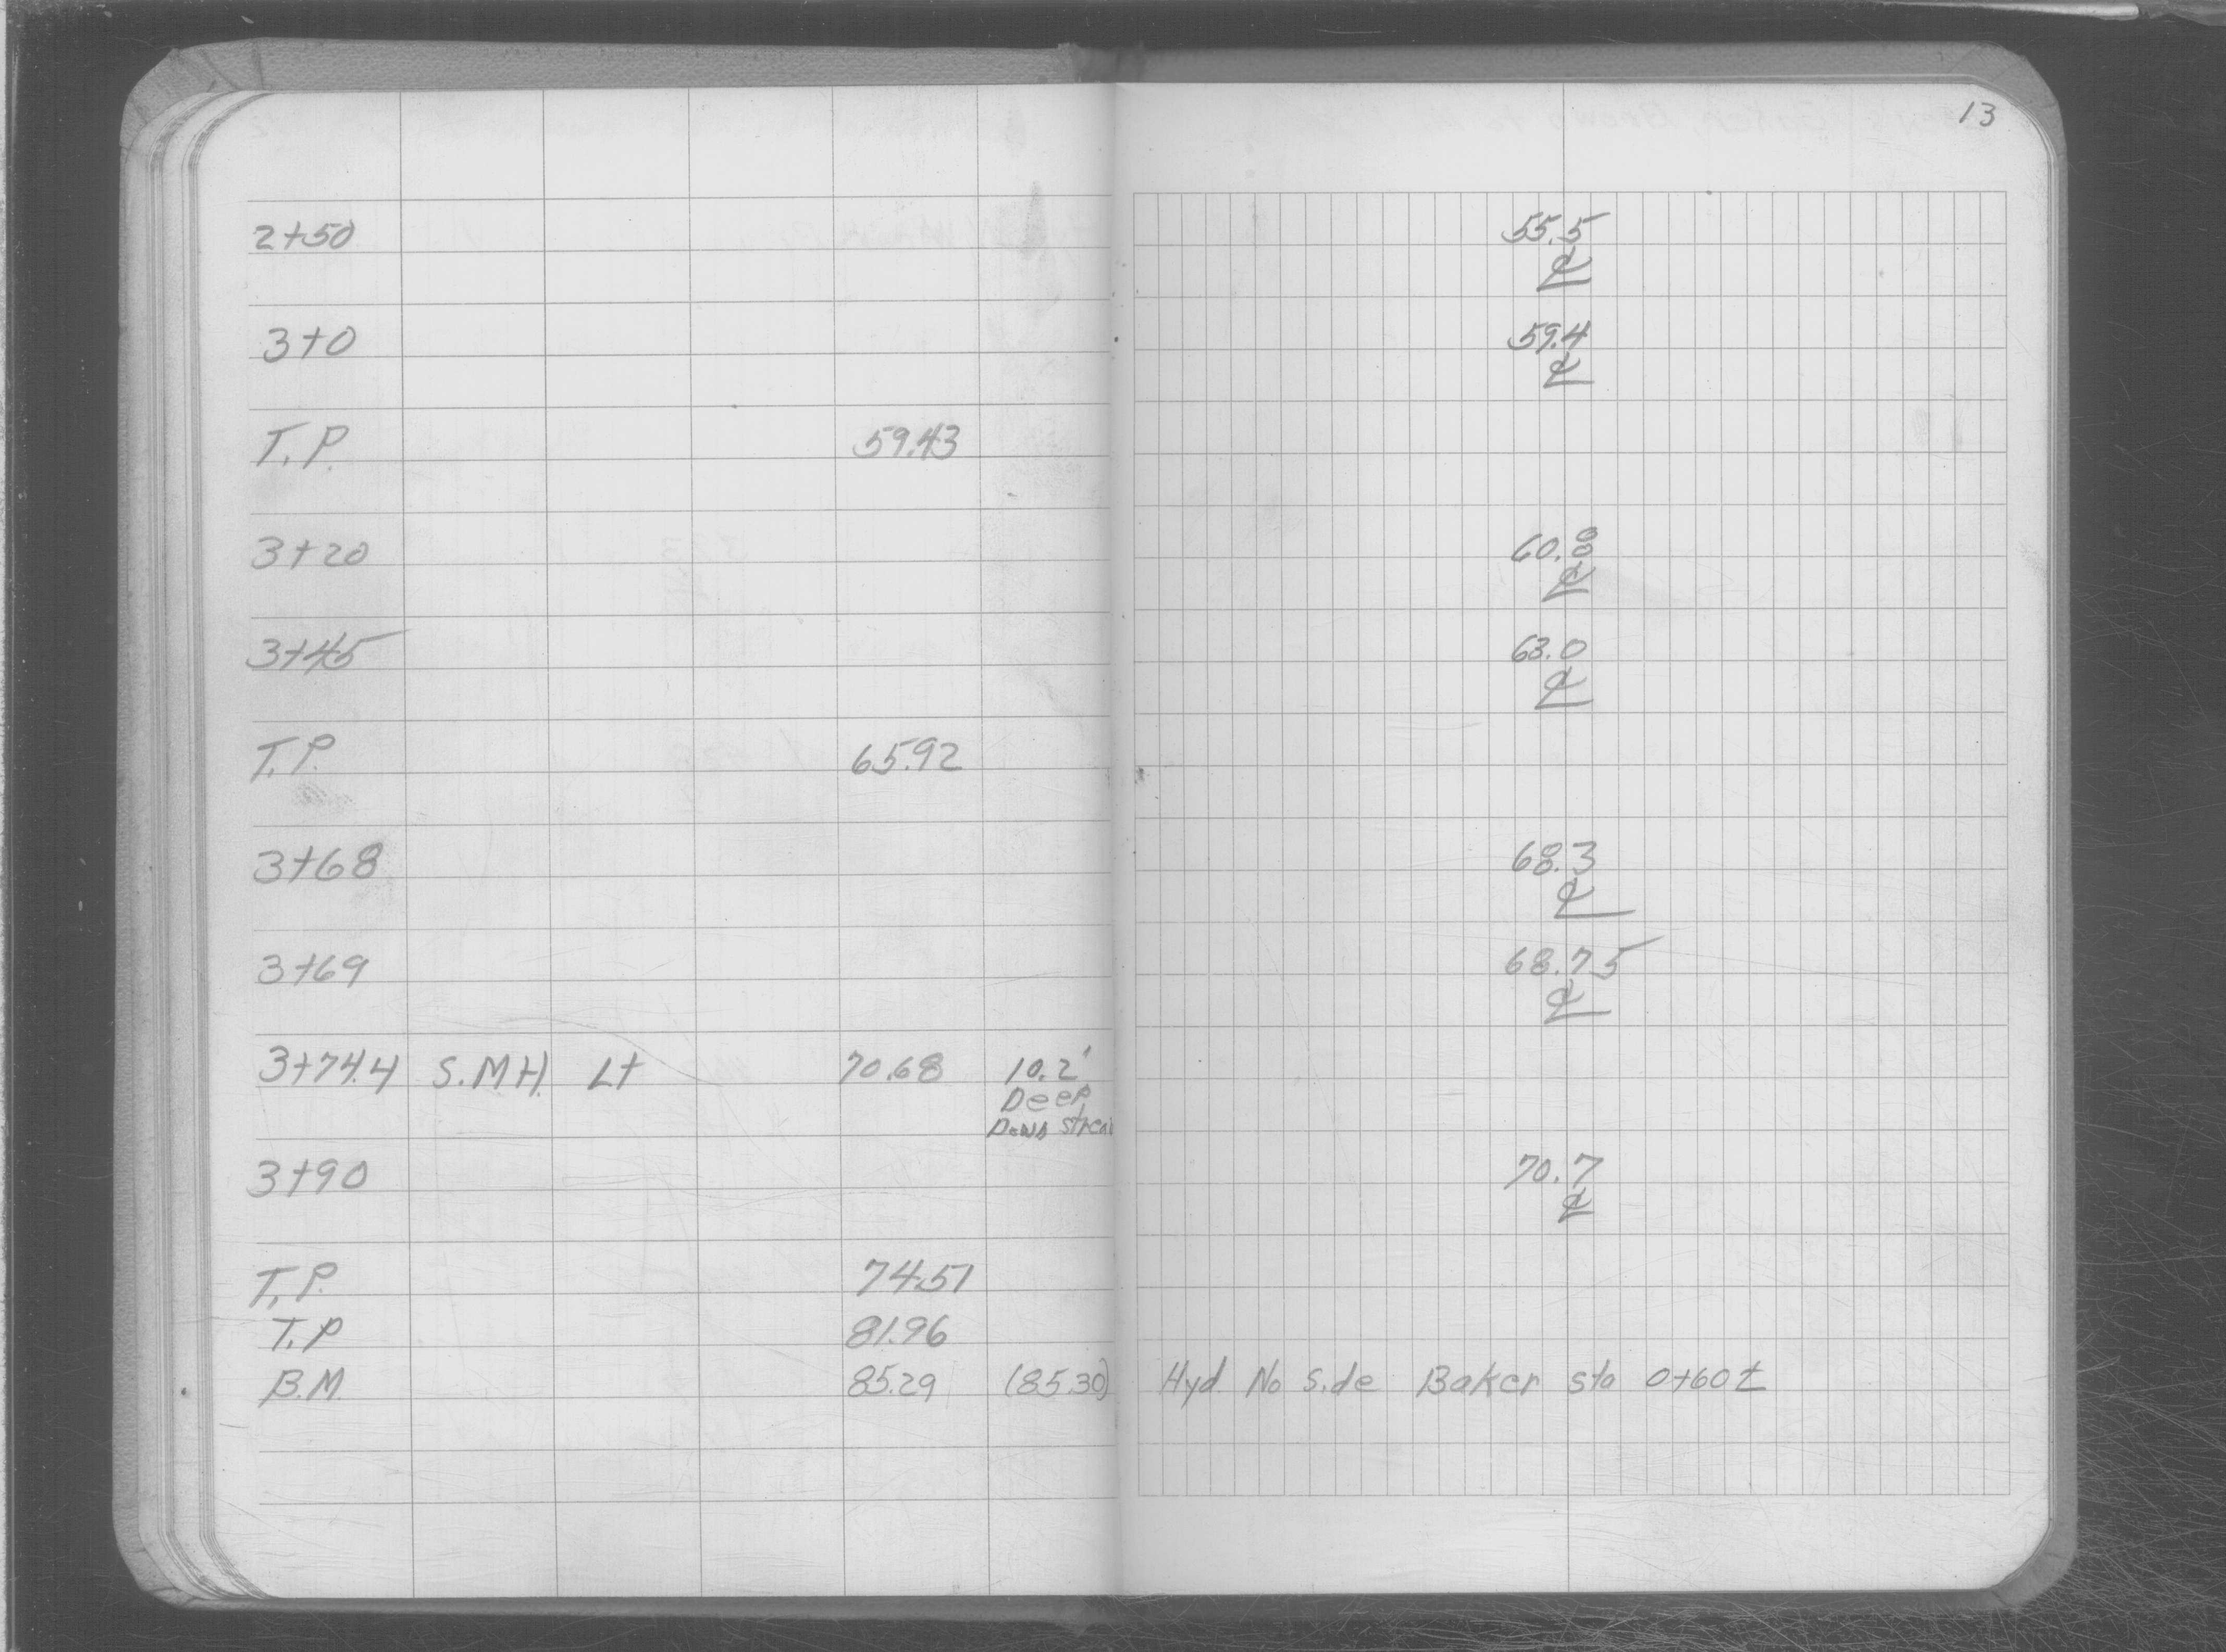 13
2+50 55.5
℄
3+0 59.4
℄
T.P. 59.43
3+20 60.8
℄
3+45 63.0
℄
T.P. 65.92
3+68 68.3
℄
3+69 68.75
℄
3+74.4 S.M.H. Lt 70.68 10.2'
Deep
Down stream
3+90 70.7
℄
T.P. 74.51
T.P 81.96
B.M. 85.29 (85.30) Hyd. No Side Baker sta 0+60±